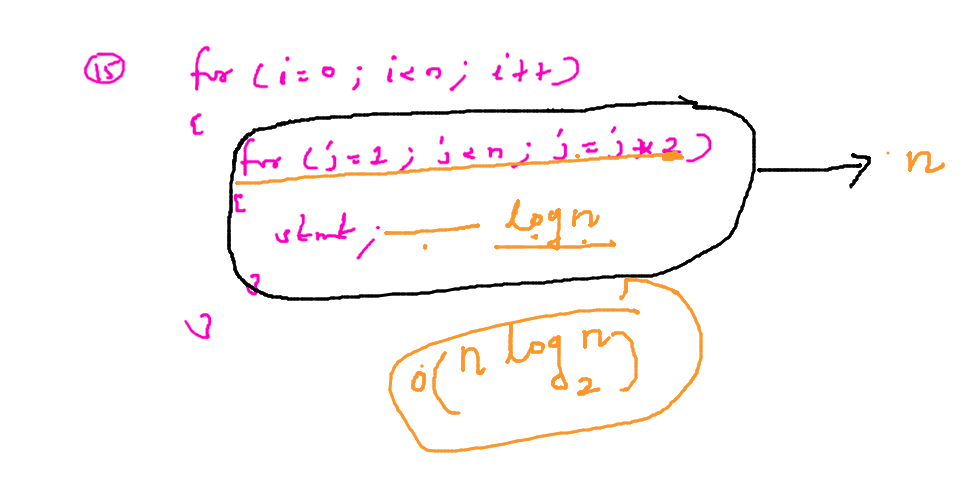 15 for (i=0; i<n; i++)
{
for (j=1; j<n; j=j*2) n
{
stmt; log n
}
}
O(n log₂ n)